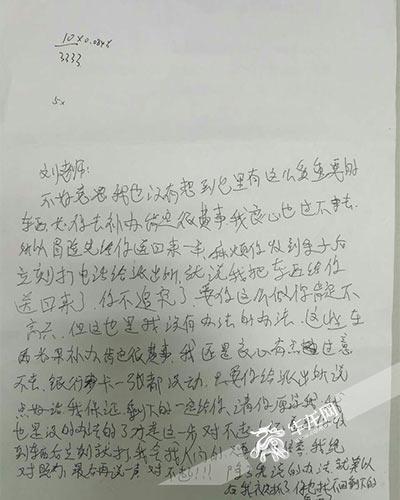 10×0.084
3333
5×
刘老师:
不好意思我也没有想到包里有这么多重要的
东西 你去补办 肯定很费事我良心也过不去
所以冒险先给你送回来一半,麻烦你收到東子后
立刻打电话给派出所,就说我把东西给你
送回来了,你不追究了,要你这么做你肯定不
高兴,但这也是我没有办法的办法,这些东
西如果补办肯定很费事,我还是良心有点过意
不去,银行卡一张都没动,只要你给派出所说
点好话我保证 剩下的一定给你,请你原谅我,我
也是没的办法的了才走这一步 对不起
到东西后立刻就打 我
对 最后再说一声 对不起!!! 没的办法就算以
后我
华龙网